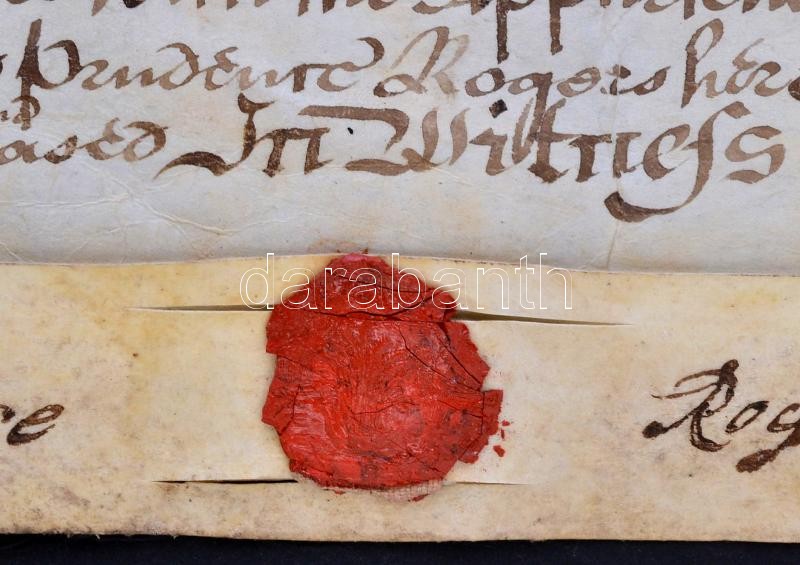 the Appurten
Prudence Rogers her
ased In Witness
darabanth
re Rog